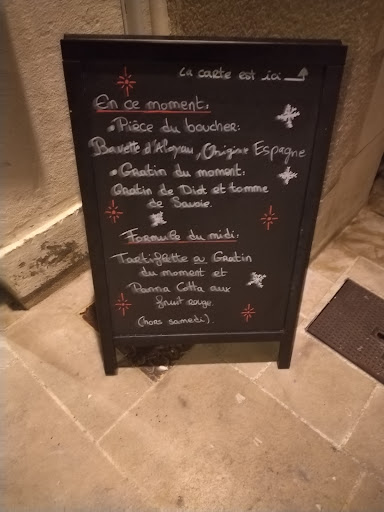 La carte est ici
En ce moment:
• Pièce du boucher:
Bavette d'Aloyau, Origine Espagne
• Gratin du moment:
Gratin de Diot et tomme
de Savoie.
Formule du midi:
Tartiflette ou Gratin
du moment et
Panna Cotta aux
fruit rouge.
(hors samedi).